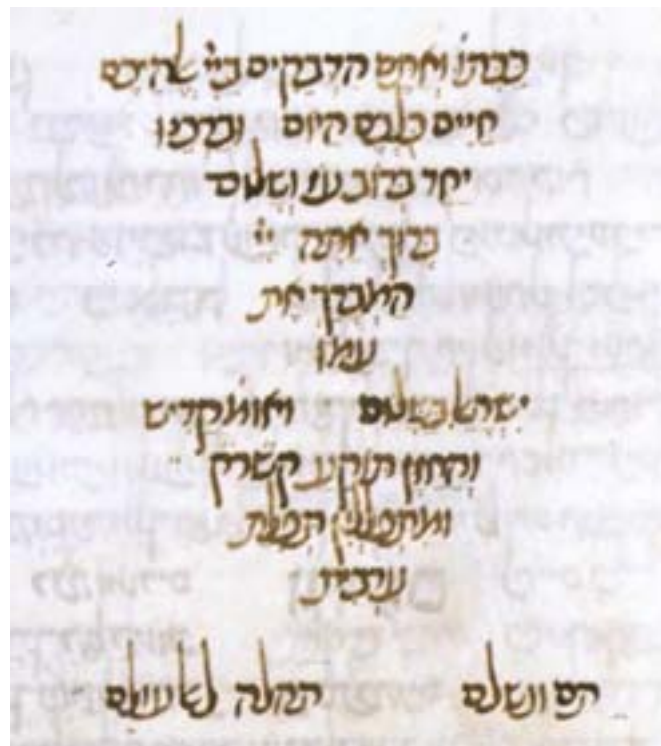 ככתו׳ ואתם הדבקים ביי אלהיכם
חיים כלכם היום וברכנו
יחד ברוב עוז ושלום
ברוך אתה יי
המברך את
עמו
ישראל בשלום ואומ׳ קדיש
והחזן תוקע קשרק
ומתפללין תפלת
ערבית
תם ונשלם תהלה לאל עולם